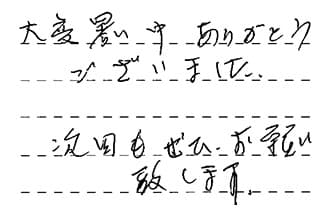 大変暑い中ありがとう
ございました。
次回もぜひお願い
致します。